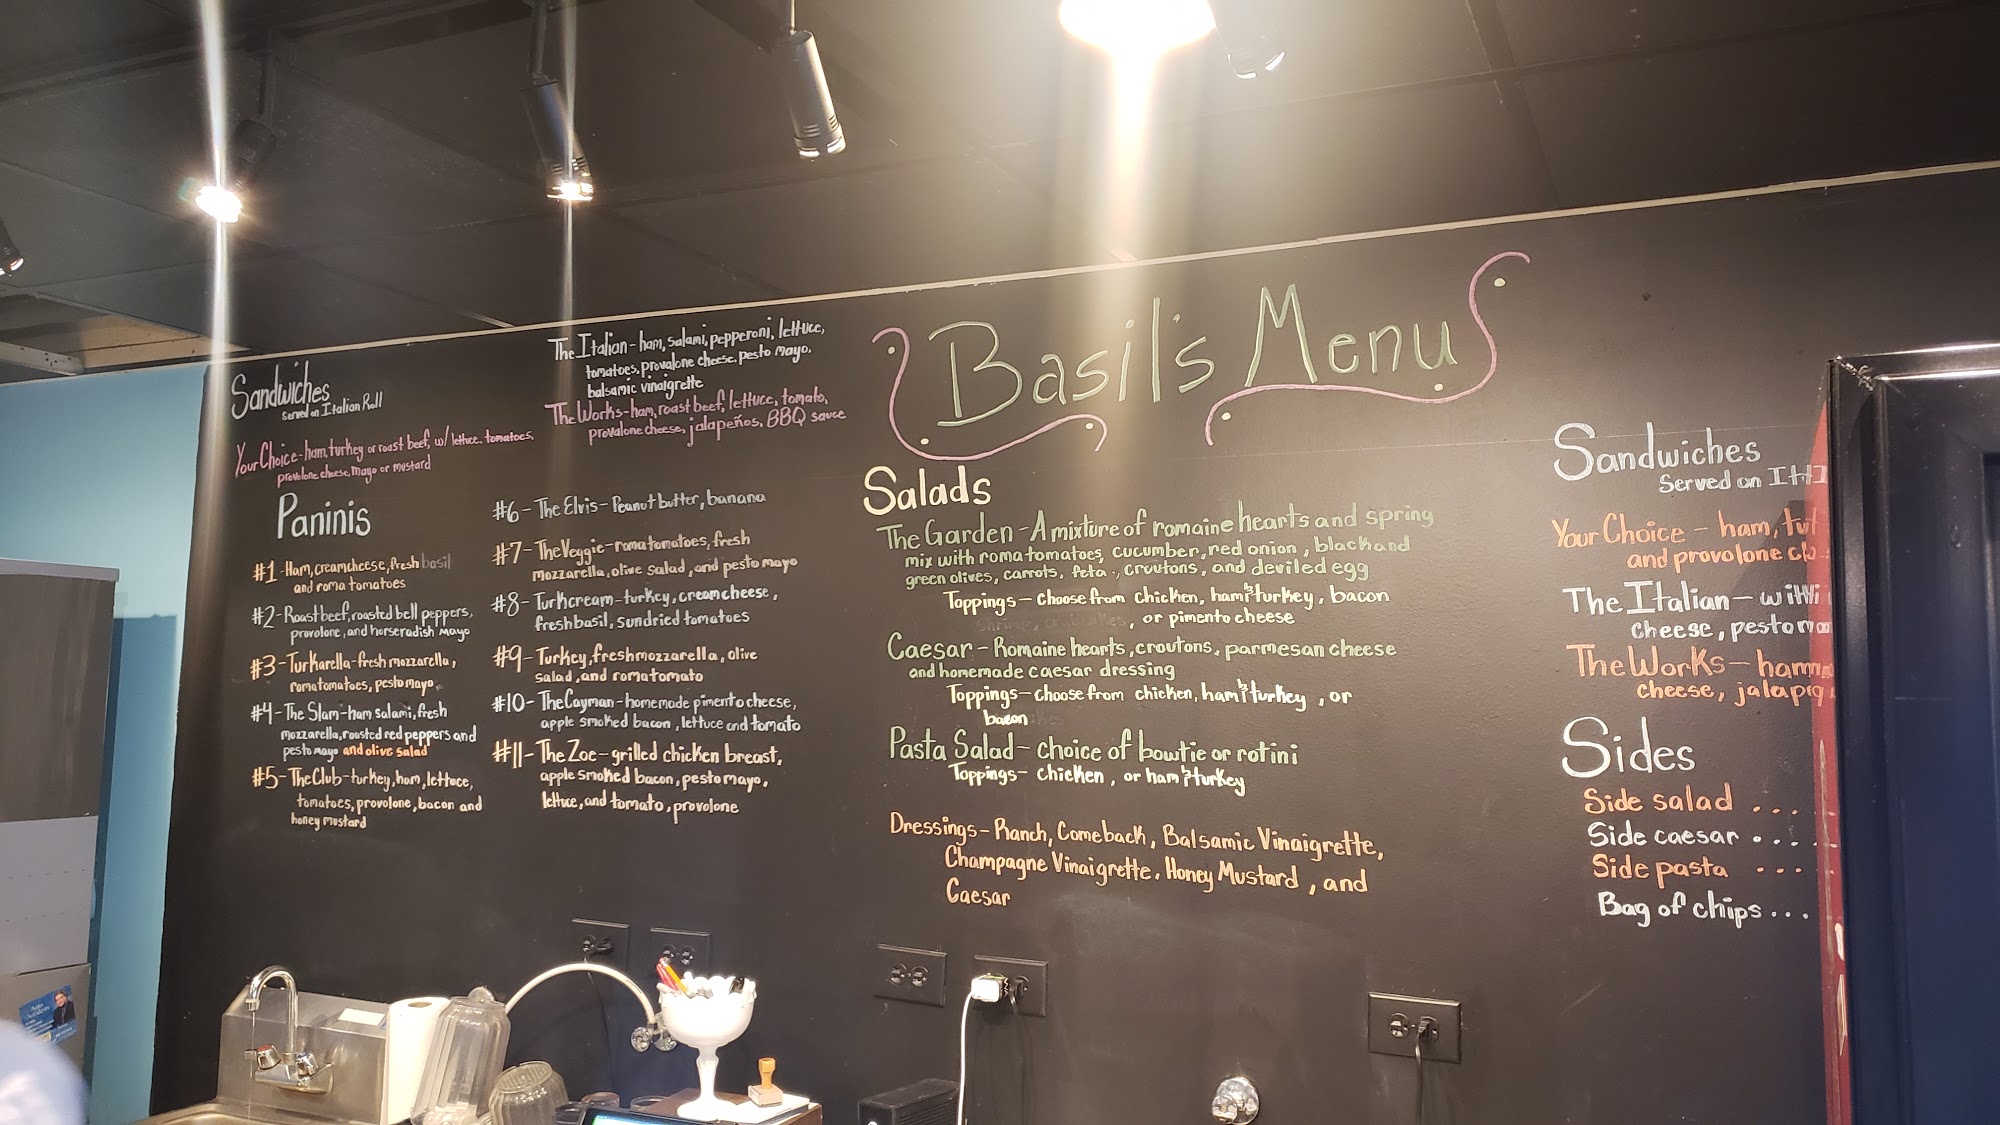 Basil's Menu
Sandwiches
Served on Italian Roll
Your Choice - ham, turkey or roast beef, w/ lettuce, tomatoes,
provolone cheese, mayo or mustard
The Italian - ham, salami, pepperoni, lettuce,
tomatoes, provolone cheese, pesto mayo,
balsamic vinaigrette
The Works - ham, roast beef, lettuce, tomato,
provolone cheese, jalapeños, BBQ sauce
Paninis
#1 - Ham, creamcheese, fresh basil
and roma tomatoes
#2 - Roast beef, roasted bell peppers,
provolone, and horseradish mayo
#3 - Turkarella - fresh mozzarella,
roma tomatoes, pesto mayo
#4 - The Slam - ham salami, fresh
mozzarella, roasted red peppers and
pesto mayo and olive salad
#5 - The Club - turkey, ham, lettuce,
tomatoes, provolone, bacon and
honey mustard
#6 - The Elvis - Peanut butter, banana
#7 - The Veggie - roma tomatoes, fresh
mozzarella, olive salad, and pesto mayo
#8 - Turkcream - turkey, creamcheese,
fresh basil, sundried tomatoes
#9 - Turkey, fresh mozzarella, olive
salad, and roma tomato
#10 - The Cayman - homemade pimento cheese,
apple smoked bacon, lettuce and tomato
#11 - The Zoe - grilled chicken breast,
apple smoked bacon, pesto mayo,
lettuce, and tomato, provolone
Salads
The Garden - A mixture of romaine hearts and spring
mix with roma tomatoes, cucumber, red onion, black and
green olives, carrots, feta, croutons, and deviled egg
Toppings - choose from chicken, ham & turkey, bacon
, or pimento cheese
Caesar - Romaine hearts, croutons, parmesan cheese
and homemade caesar dressing
Toppings - choose from chicken, ham & turkey, or
bacon
Pasta Salad - choice of bowtie or rotini
Toppings - chicken, or ham & turkey
Dressings - Ranch, Comeback, Balsamic Vinaigrette,
Champagne Vinaigrette, Honey Mustard, and
Caesar
Sandwiches
Served on
Your Choice - ham,
and provolone
The Italian -
cheese, pesto
The Works - ham
cheese,
Sides
Side salad ...
Side caesar ...
Side pasta ...
Bag of chips ...